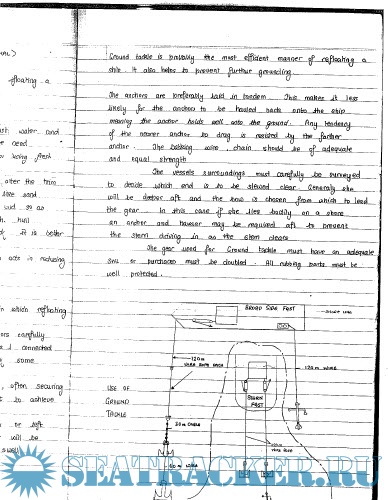 floating a
water and
need
or using fresh
alter the trim
and so as
hull
it is better
acts in reducing
in which refloating
ors carefully
& connected
some
often securing
to achieve
or soft
will be
swell
Ground tackle is probably the most efficient manner of refloating a
ship. It also helps to prevent further grounding.
The anchors are preferably laid in tandem. This makes it less
likely for the anchors to be hauled back onto the ship
meaning the anchor holds well onto the ground. Any tendency
of the nearer anchor to drag is resisted by the further
anchor. The backing wire, chain should be of adequate
and equal strength
The vessels surroundings must carefully be surveyed
to decide which end is to be slewed clear. Generally she
will be deeper aft and the bow is chosen from which to lead
the gear. In this case if she lies badly on a shore
an anchor and hawser may be required aft to prevent
the stern driving in as the stem clears.
The gear used for Ground tackle must have an adequate
SWL or purchases must be doubled. All rubbing parts must be
well protected.
BROAD SIDE FAST
120m
WIRE ROPE EACH
120m WIRE
STERN
FAST
USE OF
GROUND
TACKLE
30m CABLE
60m WIRE
WIRE ROPE
SEATRACKER.RU